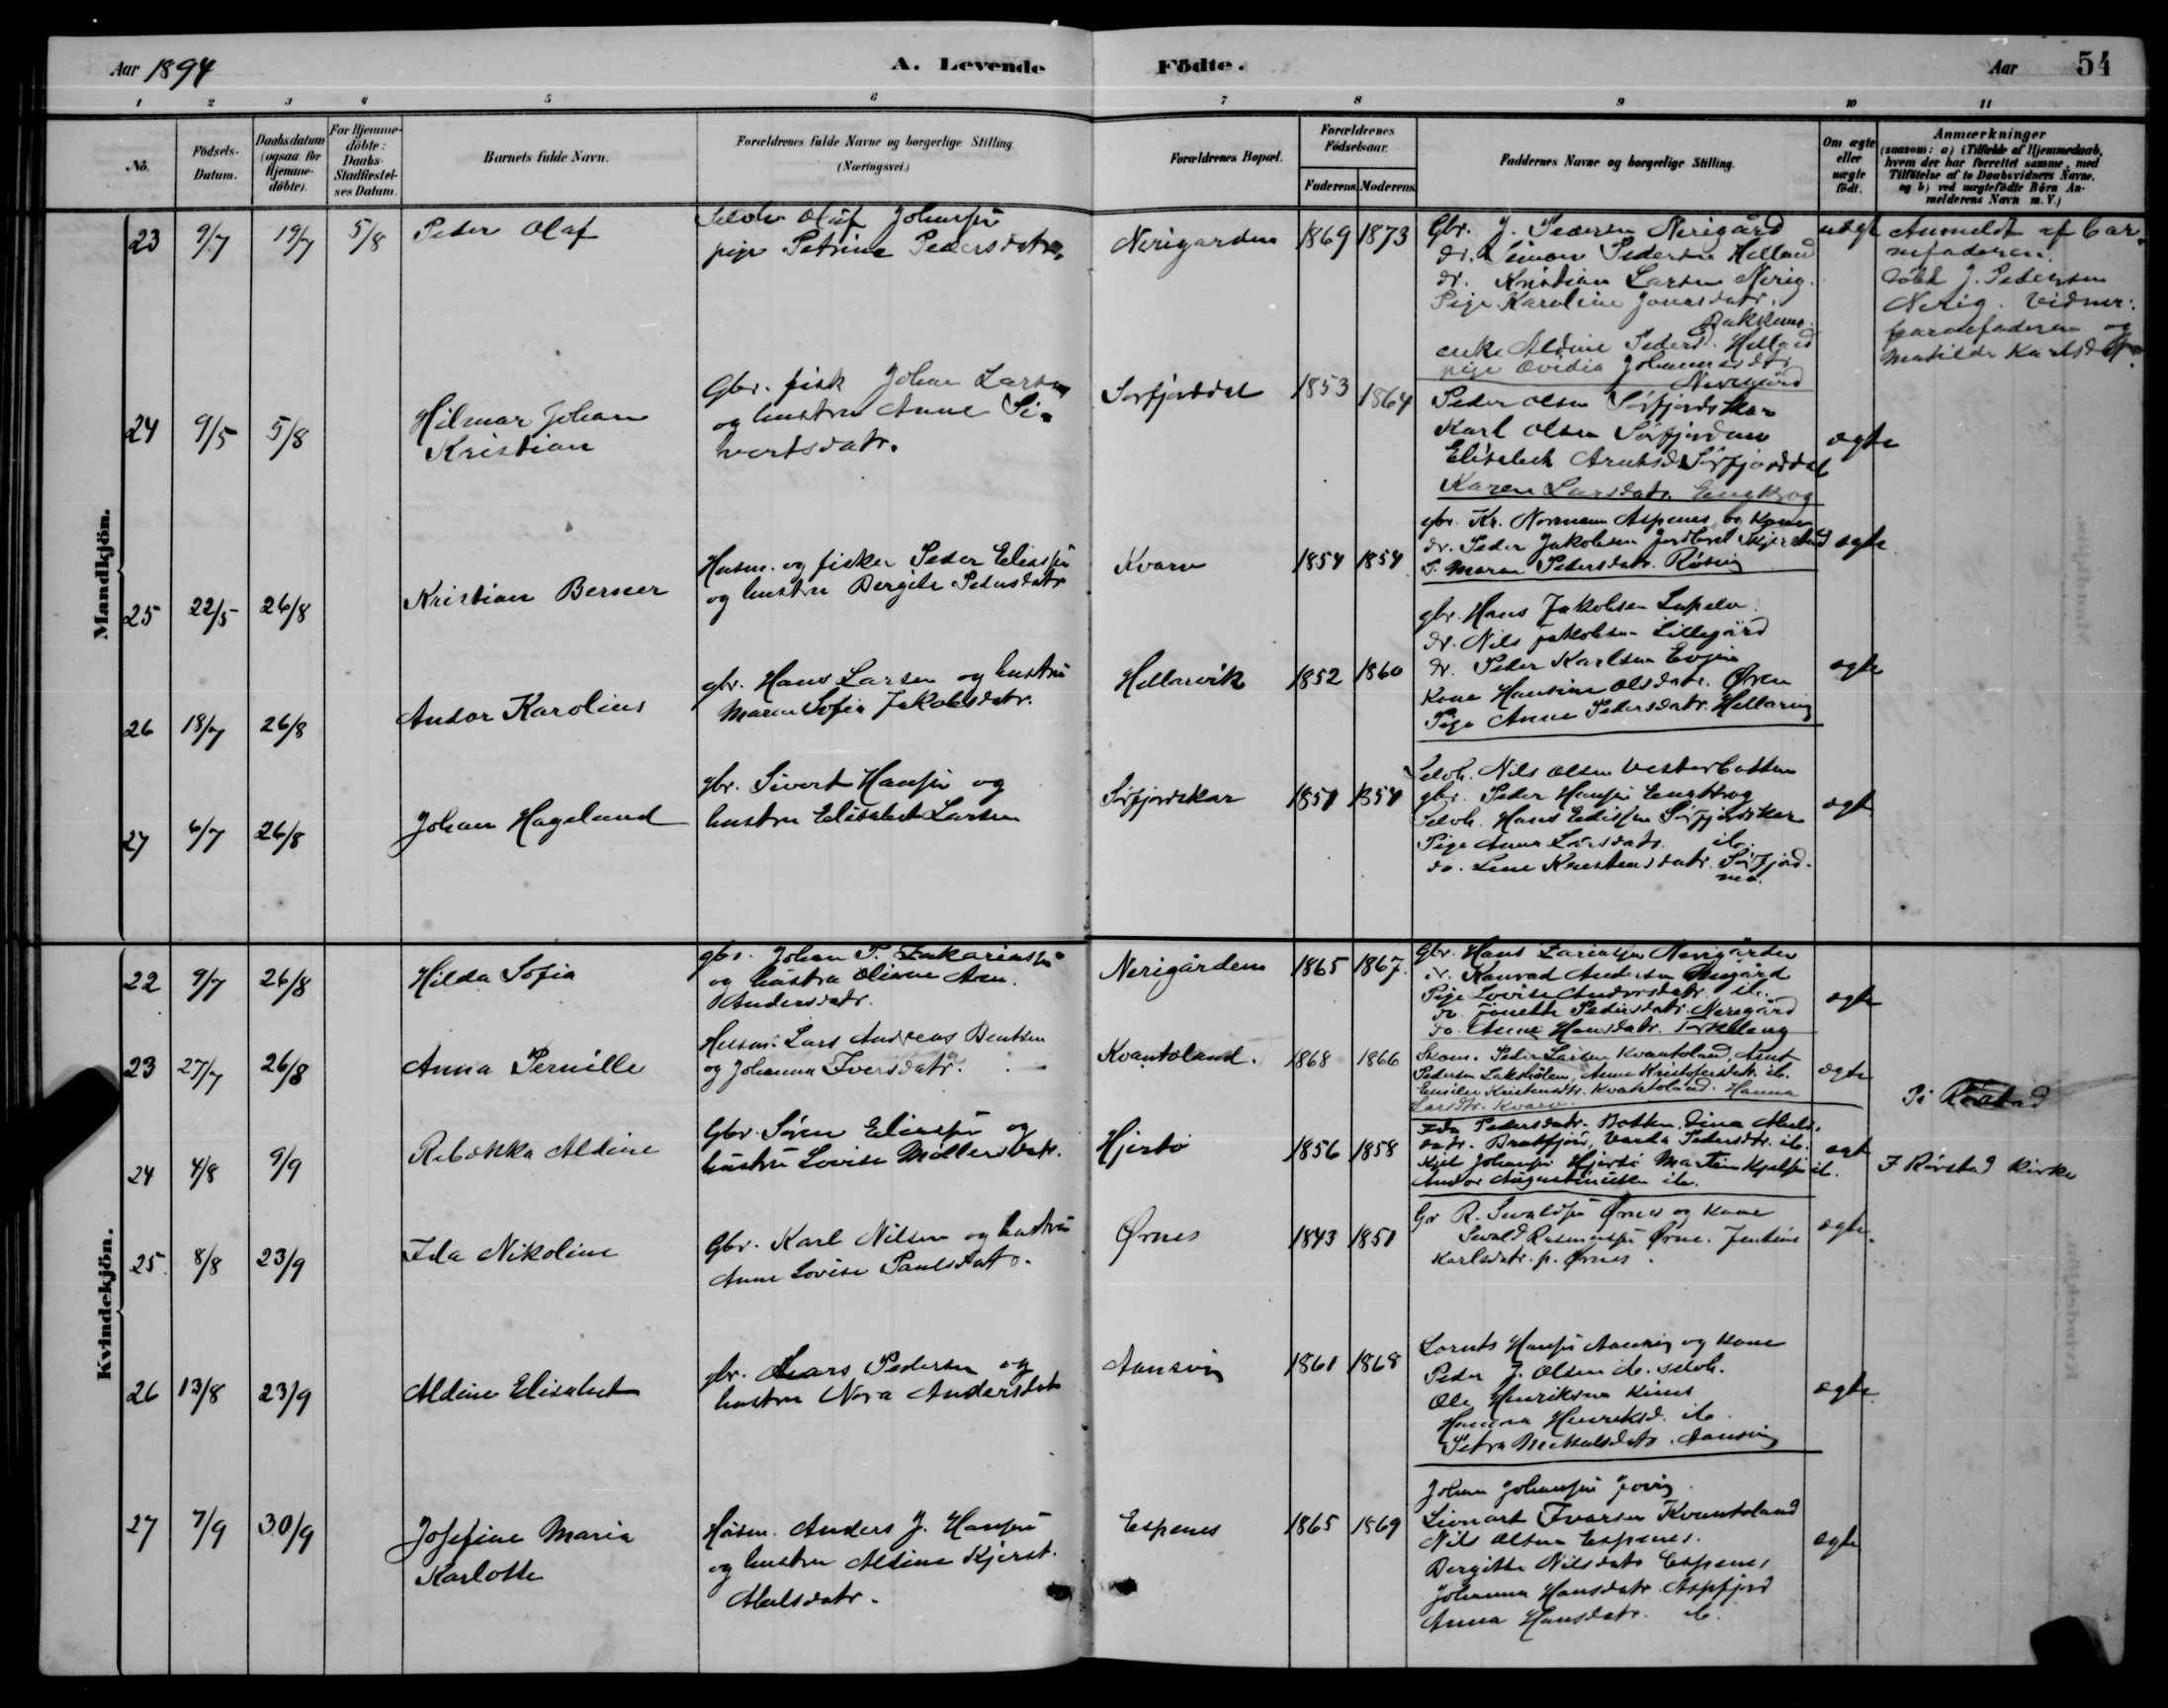 Aar 1894
A. Levende
Födte.
Aar
54
1 2 3 4 5 6 7 8 9 10 11
No.
Födsels-Datum.
Daabsdatum (ogsaa for Hjemme-döbte).
For Hjemme-döbte: Daabs-Stadfæstel-ses Datum.
Barnets fulde Navn.
Forældrenes fulde Navne og borgerlige Stilling. (Næringsvei.)
Forældrenes Bopæl.
Forældrenes Födselsaar.
Faderens. Moderens.
Faddernes Navne og borgerlige Stilling.
Om ægte eller uægte födt.
Anmærkninger
(saasom: a) i Tilfælde af Hjemmedaab,
hvem der har forrettet samme, med
Tilföielse af to Daabsvidners Navne,
og b) ved uægtefödte Börn An-
melderens Navn m. V.)
Mandkjön.
23 9/7 19/7 5/8 Peder Olaf
Olaf Johansen
pige Petrine Pedersdatr.
Nerigarden 1869 1873
Gbr. J. Pedersen Nerigård
dr. Simon Pedersen Helland
dr. Kristian Larsen Nerig.
Pige Karoline Jonasdatr.
Bakken
enke Aldine Pedersd. Helland
pige Ovidia Johannesdtr
Nerigård
uægt
Anmeldt af bar-
nefaderen.
döbt J. Pedersen
Nerig. Vidner:
barnefaderen og
Matilde Karlsdtr.
24 9/5 5/8 Hilmar Johan
Kristian
Gbr. fisk Johan Larsen
og hustru Anne Si-
vertsdatr.
Sørfjorddal 1853 1864
Peder Olsen Sørfjordskar
Karl Olsen Sørfjordmo
Elisabet Arntsd. Sørfjorddal
Karen Larsdatr. Engkrog
ægte
25 22/5 26/8 Kristian Berner
Husm. og fisker Peder Eliassen
og hustru Bergite Pedersdatr
Kvarv 1854 1854
gbr. Kr. Normann Aspenes og kone
dr. Peder Jakobsen
P. Maren Pedersdatr. Røsvig
ægte
26 18/7 26/8 Andor Karolius
gbr. Hans Larsen og hustru
Maren Sofia Jakobsdatr.
Hellarvik 1852 1860
gbr. Hans Jakobsen
dr. Nils Jakobsen Lillegård
dr. Peder Karlsen Evjen
Kone Hansine Olsdatr. Øren
Pige Anne Pedersdatr. Hellarvig
ægte
27 6/7 26/8 Johan Hageland
gbr. Sivert Hansen og
hustru Elisabet Larsen
Sørfjordskar 1851 1854
Selvh. Nils Olsen Vesterbotten
gbr. Peder Hansen Engkrog
Selvh. Hans Sørfjordskar
Pige Anna Larsdatr. ib.
do. Lene Kristensdatr. Sørfjord-
mo.
ægt
Kvindekjön.
22 9/7 26/8 Hilda Sofia
gbr. Johan P. Zakariassen
og hustru Oliane Aren.
Andersdatr.
Nerigården 1865 1867.
Gbr. Hans Nerigården
dr. Konrad Andersen
Pige Lovise Andersdatr. ib.
do. Jonette Pedersdatr. Nerigård
do. Anne Hansdatr.
ægte
23 27/7 26/8 Anna Pernille
Husm. Lars Andreas Bentsen
og Johanna Iversdatr.
Kvantoland. 1868 1866
Skom. Peder Larsen Kvantoland, Arnt
Pedersen Laksholen, Anne Kristofersdatr. ib.
Emilie Kristensdtr. Kvantoland. Hanna
Larsdtr. Kvarv.
ægte
24 4/8 9/9 Rebekka Aldine
Gbr. Søren Eliassen og
hustru Lovise Møllersdatr.
Hjertø 1856 1858
Ida Pedersdatr. Botten. Dina Abels-
datr. Brattfjord, Varda Pedersdtr. ib.
Kjel Johansen Hjertø Martin Kjelsen ib.
Andor Augustinusen ib.
ægt
I Rørstad kirke
25 8/8 23/9 Ida Nikoline
Gbr. Karl Nilsen og hustru
Anne Lovise Paulsdatr.
Ørnes 1843 1851
Gr R. Sevaldsen Ørnes og kone
Sevald Rasmussen Ørnes. Jentine
Karlsdatr. p. Ørnes.
ægte.
26 13/8 23/9 Aldine Elisabet
gbr. Lars Pedersen og
hustru Nora Andersdatr
Aansvig 1861 1868
Lorents Hansen Aansvig og kone
Peder J. Olsen ib. selvh.
Ole Henriksen Kines
Hanna Henriksd. ib.
Petra Mikkelsdatr. Aansvig
ægte
27 7/9 30/9 Josefine Maria
Karlotte
Husm. Anders J. Hansen
og hustru Aldine Kjerst.
Abelsdatr.
Espenes 1865 1869
Johan Johansen
Lionart Ivarsen Kvantoland
Nils Olsen Espenes.
Bergitte Nilsdatr Espenes
Johanna Hansdatr. Aspfjord
Anna Hansdatr. ib.
ægte